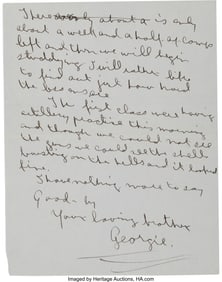 There only about a is only
about a week and a half of camp
left and then we will begin
studying I will rather like
to find out just how hard
the lessons are
The first class were having
artillery practice this morning
and though we could not see
the guns we could see the shells
bursting on the hills and it looked
fine.
I have nothing more to say
Good-by
Your loving brother
Georgie.
Imaged by Heritage Auctions, HA.com